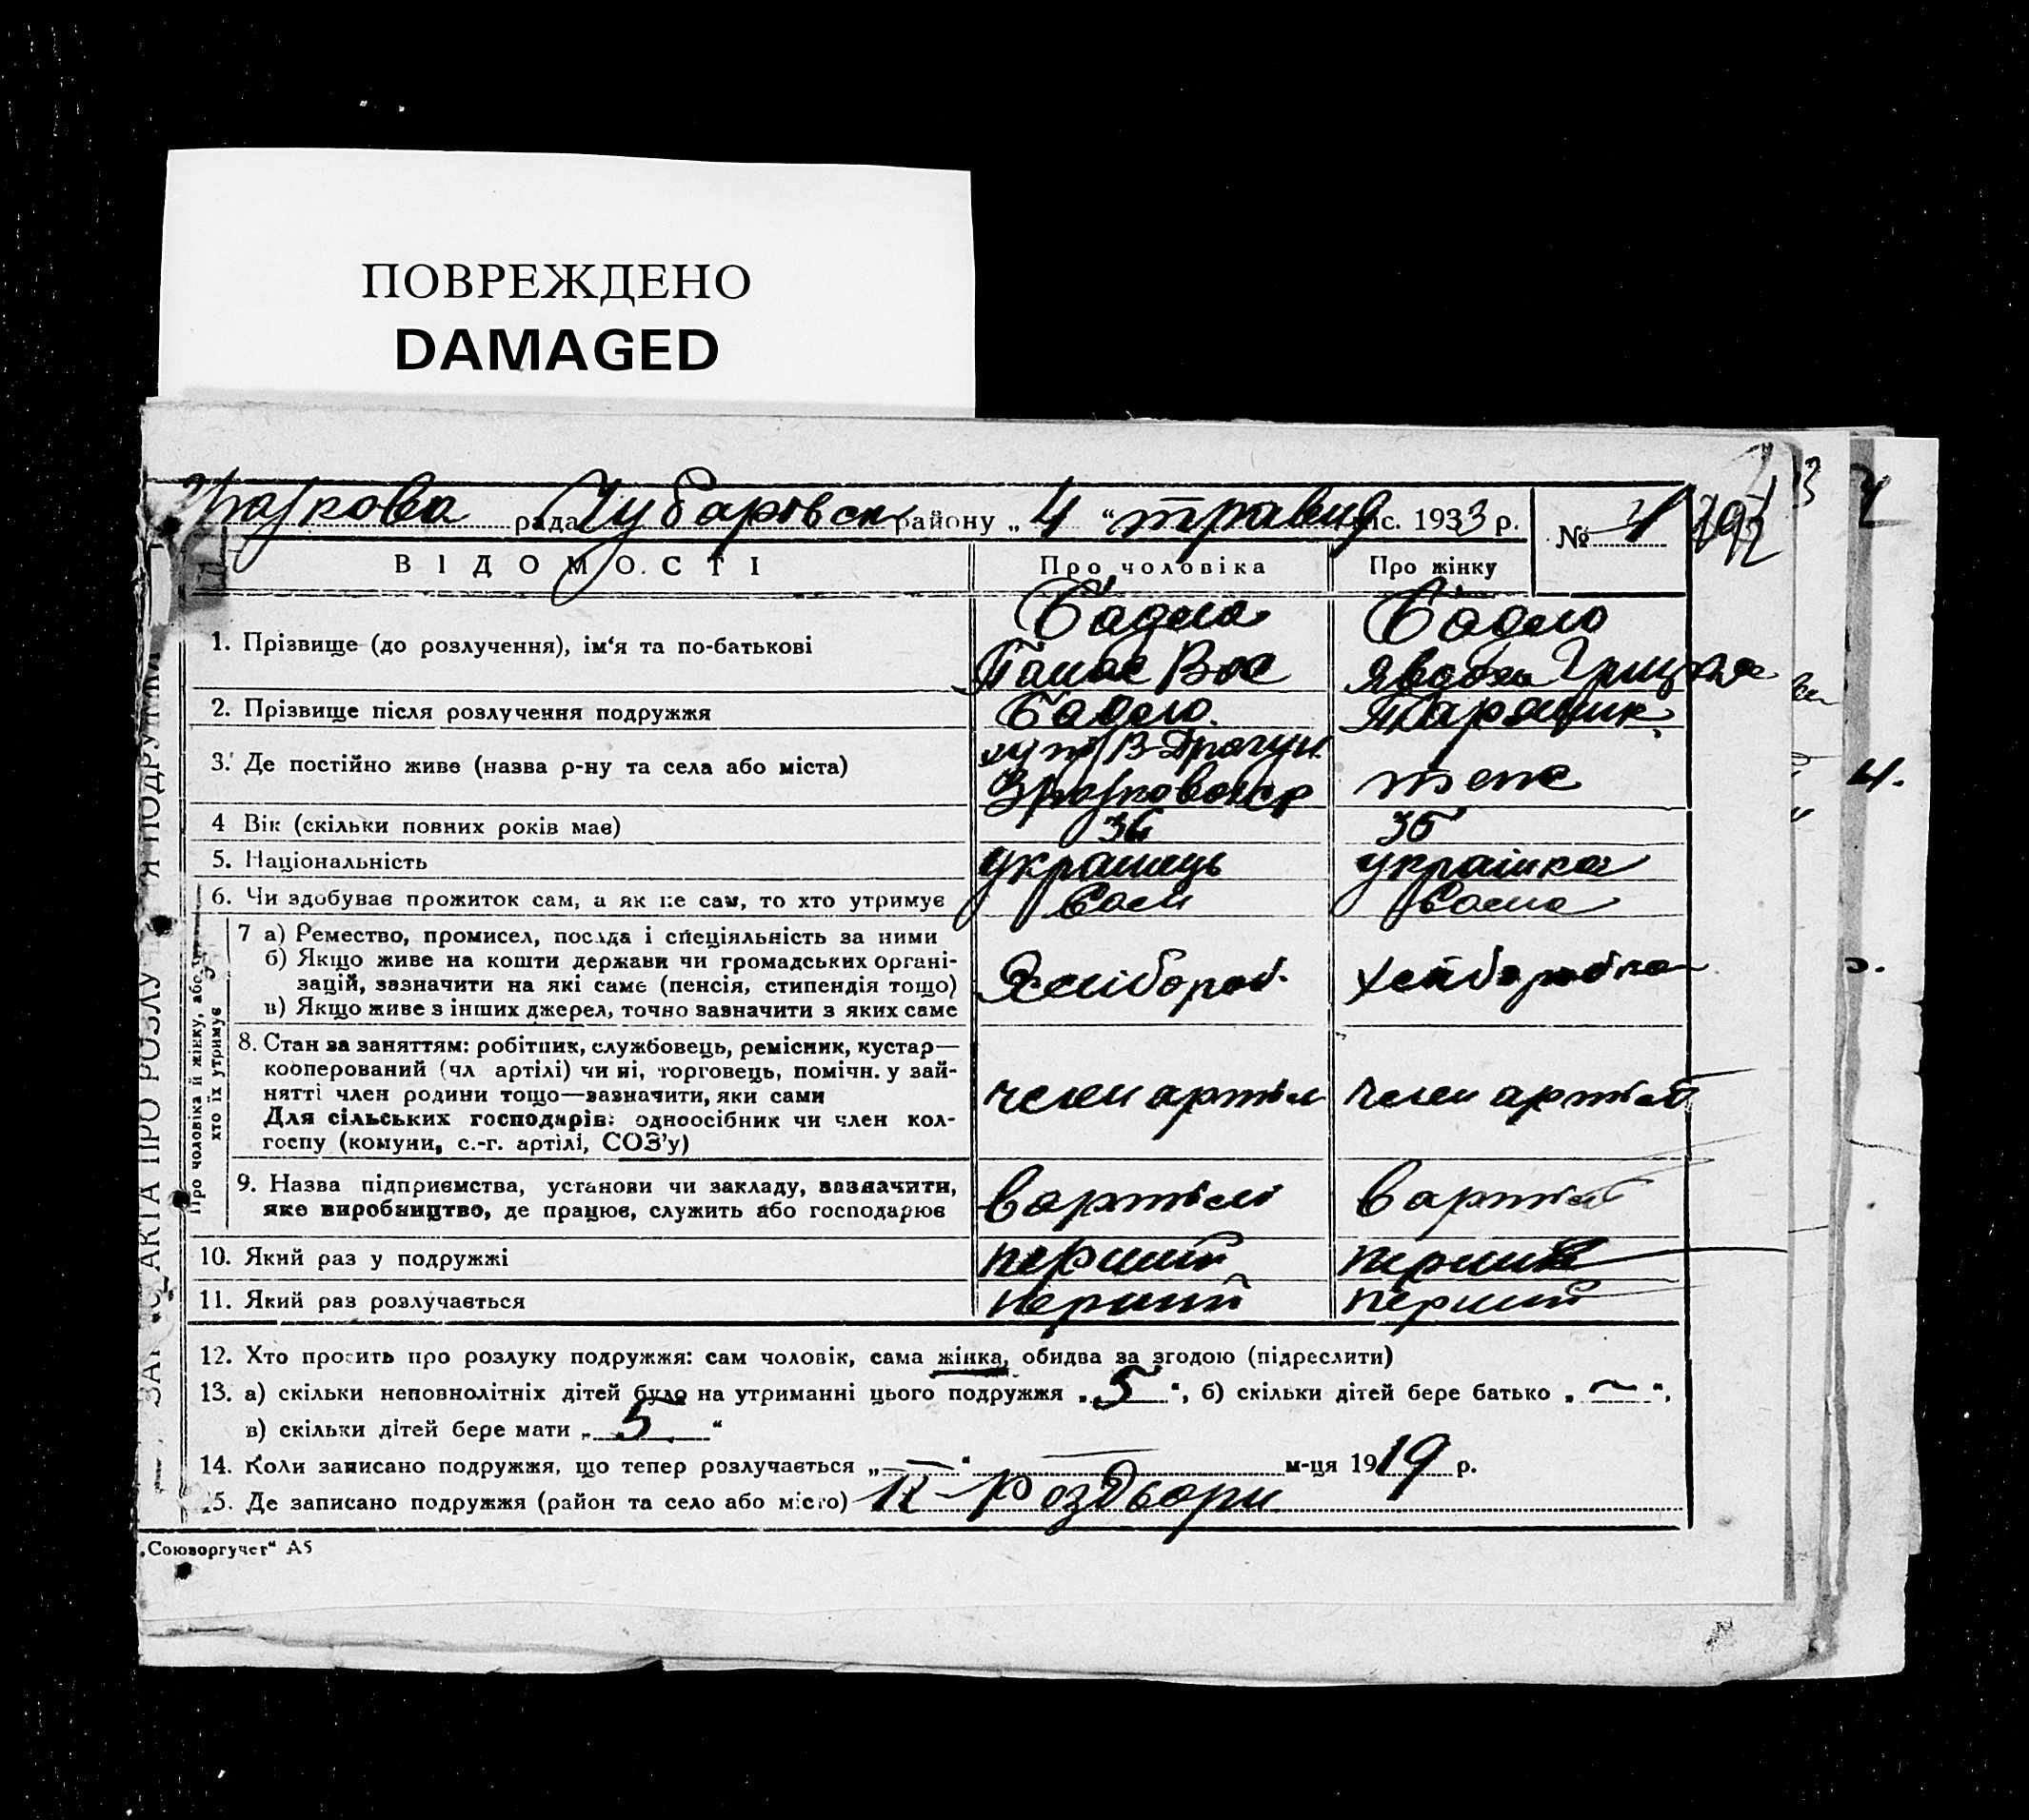 ПОВРЕЖДЕНО
DAMAGED
рада Чубаровск району „ 4 “ травня міс. 1933 р. №
ВІДОМОСТІ Про чоловіка Про жінку
1. Прізвище (до розлучення), ім‘я та по-батькові Бадло Бадло
Панас Вас Явдоха
2. Прізвище після розлучення подружжя Бадло.
3. Де постійно живе (назва р-ну та села або міста)
теж
4 Вік (скільки повних років має) 36 35
5. Національність українець українка
6. Чи здобуває прожиток сам, а як не сам, то хто утримує Сам Сама
Про чоловіка й жінку, або
хто їх утримує
7 а) Ремество, промисел, посада і спеціяльність за ними
б) Якщо живе на кошти держави чи громадських органі-
зацій, зазначити на які саме (пенсія, стипендія тощо) Хліброб. хліборобка
в) Якщо живе з інших джерел, точно зазначити з яких саме
8. Стан за заняттям: робітник, службовець, ремісник, кустар—
кооперований (чл артілі) чи ні, торговець, помічн. у зай-
нятті член родини тощо—зазначити, яки сами член артіл член артілі
Для сільських господарів: одноосібник чи член кол-
госпу (комуни, с.-г. артілі, СОЗ’у)
9. Назва підприємства, установи чи закладу, зазначити, вартілі вартілі
яке виробництво, де працює, служить або господарює
10. Який раз у подружжі перший перший
11. Який раз розлучається перший перший
12. Хто просить про розлуку подружжя: сам чоловік, сама жінка, обидва за згодою (підреслити)
13. а) скільки неповнолітніх дітей було на утриманні цього подружжя „ 5 “, б) скільки дітей бере батько „ — “,
в) скільки дітей бере мати „ 5 “
14. Коли записано подружжя, що тепер розлучається „ — “ — м-ця 1919 р.
15. Де записано подружжя (район та село або місто) Роздори
„Союзоргучет“ А5